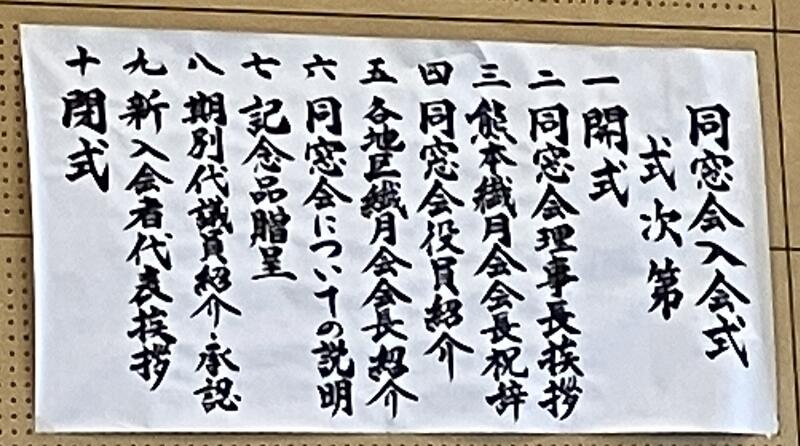 同窓会入会式
式次第
一 開式
二 同窓会理事長挨拶
三 熊本繊月会会長祝辞
四 同窓会役員紹介
五 各地区繊月会会長紹介
六 同窓会についての説明
七 記念品贈呈
八 期別代議員紹介・承認
九 新入会者代表挨拶
十 閉式